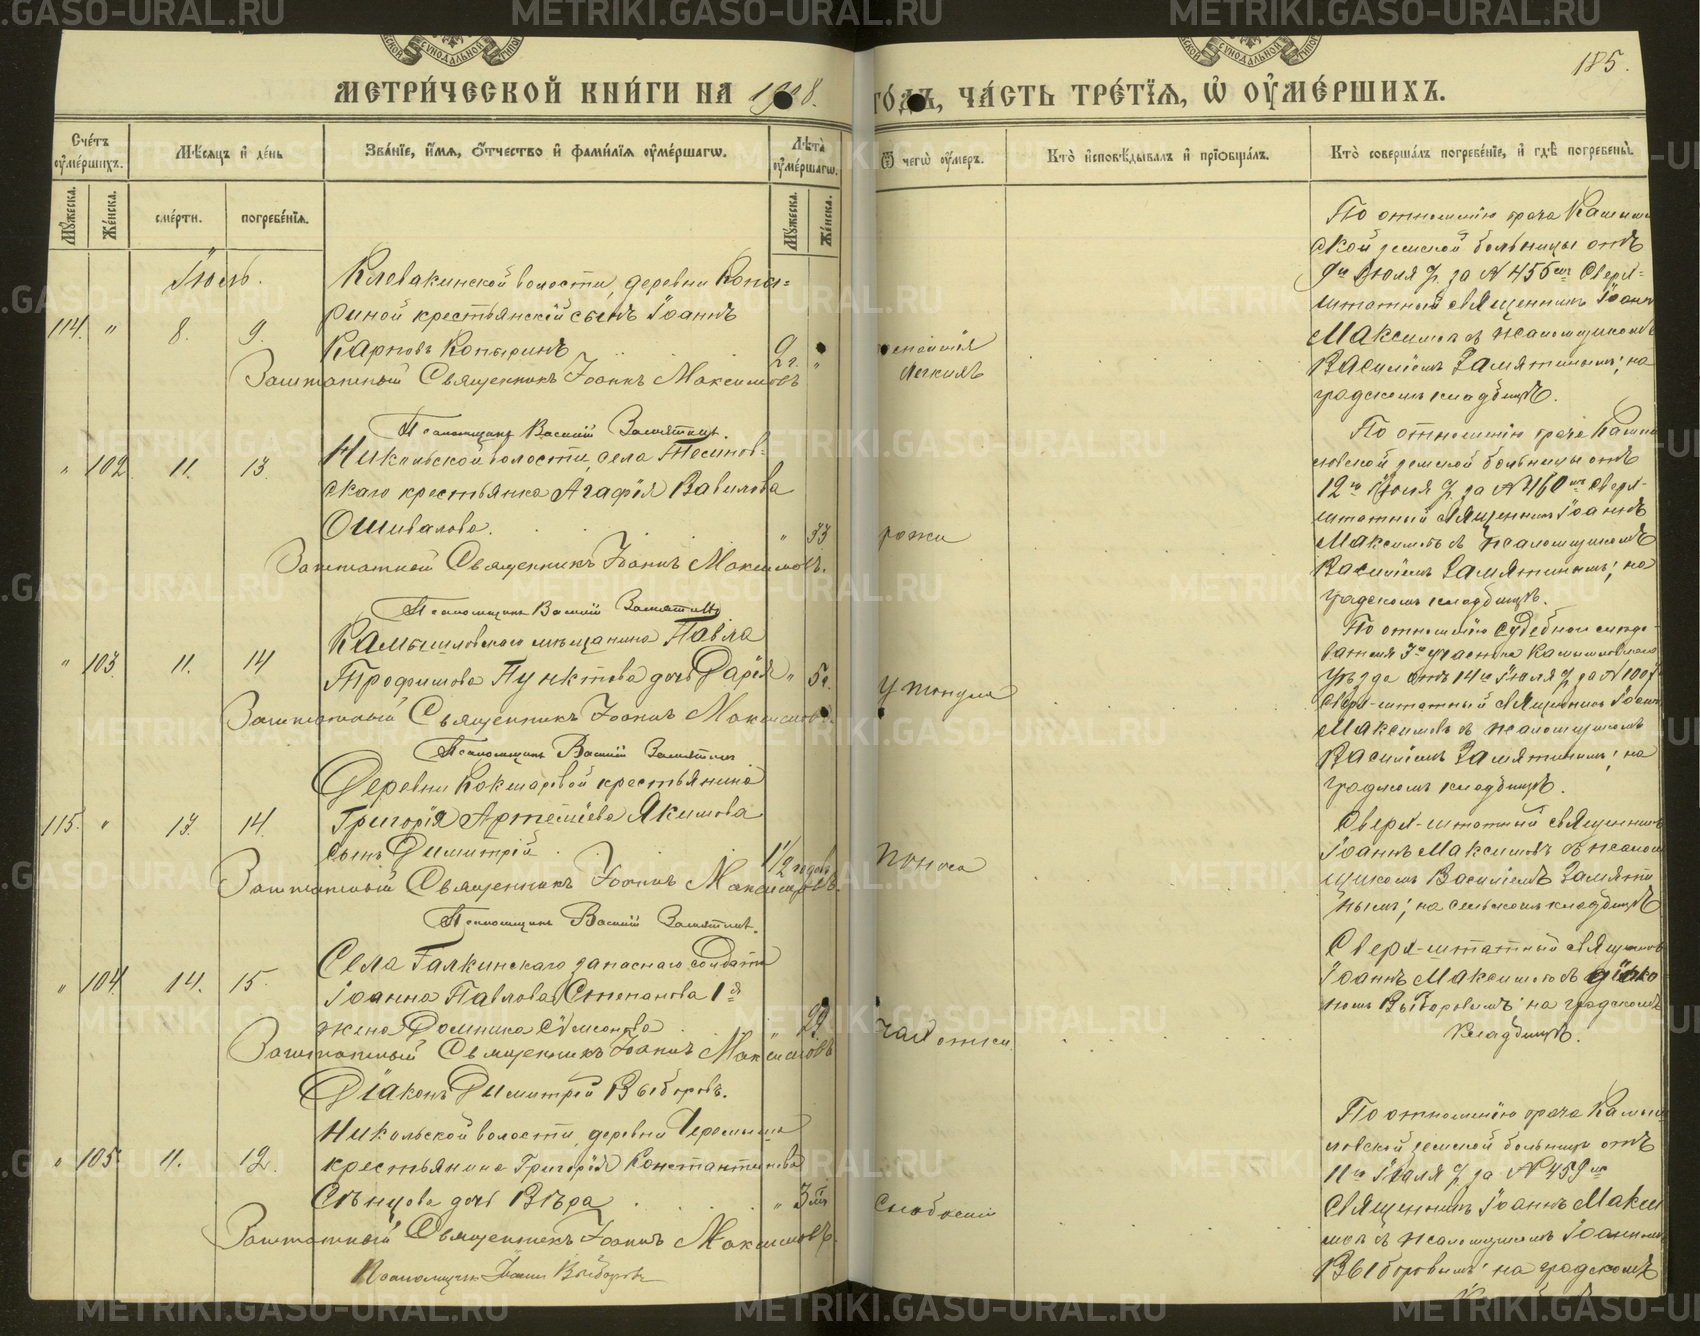 МЕТРИ́ЧЕСКОЙ КНИ́ГИ НА 1908.
ГО́ДЪ, ЧА́СТЬ ТРЕ́ТІѦ, Ѡ҆ ОУ҆МЕ́РШИХЪ.
185.
Сче́тъ оу҆ме́ршихъ.
Мѣ́сѧцъ и҆ де́нь
Зва́нїе, и҆́мѧ, ѻ҆́тчество и҆ фами́лїѧ оу҆ме́ршагѡ.
Лѣ́та оу҆ме́ршагѡ.
Ѿ чегѡ̀ оу҆́меръ.
Кто̀ и҆сповѣ́дывалъ и҆ прїобща́лъ.
Кто̀ соверша́лъ погребе́нїе, и҆ гдѣ̀ погребены̀.
Мꙋ́жеска.
Же́нска.
сме́рти.
погребе́нїѧ.
Мꙋ́жеска.
Же́нска.
Іюль.
Клевакинской волости, деревни Копы-
риной крестьянскій сынъ Іоаннъ
Карповъ Копыринъ
114. " 8. 9.
2 г. "
легкихъ
Заштатный Священникъ Іоаннъ Максимовъ
Псаломщикъ Василій Замятинъ.
По отношенію врача Камыш
ской земской больницы отъ
Іюля з. за № 455 Сверх-
штатный священникъ Іоаннъ
Максимовъ съ псаломщикомъ
Василіемъ Замятинымъ; на
градскомъ кладбищѣ.
" 102 11. 13.
Никольской волости, села
скаго крестьянка Агафія Вавилова
Ошивалова.
" 33
рожи
Заштатный Священникъ Іоаннъ Максимовъ.
Псаломщикъ Василій Замятинъ
По отношенію врача Камыш
ловской земской больницы отъ
12 Іюля з. за № 460 Сверх-
штатный священникъ Іоаннъ
Максимовъ съ псаломщикомъ
Василіемъ Замятинымъ; на
градскомъ кладбищѣ.
" 103. 11. 14
Камышловскаго мѣщанина Павла
Трофимова Пунктова дочь Дарія
" 5 г.
утонула
Заштатный Священникъ Іоаннъ Максимовъ.
Псаломщикъ Василій Замятинъ
По отношенію Судебнаго слѣдо-
вателя 3 участка Камышловскаго
уѣзда отъ 14 Іюля з. за №
Сверх-штатный священникъ Іоаннъ
Максимовъ съ псаломщикомъ
Василіемъ Замятинымъ; на
градскомъ кладбищѣ.
115. " 13. 14.
Деревни Кокшаровой крестьянина
Григорія Артеміева Якимова
сынъ Димитрій
1 1/2 годовъ
поноса
Заштатный Священникъ Іоаннъ Максимовъ.
Псаломщикъ Василій Замятинъ.
Сверх-штатный священникъ
Іоаннъ Максимовъ съ псалом
щикомъ Василіемъ Замяти
нымъ; на сельскомъ кладбищѣ
" 104 14. 15.
Села Галкинскаго запаснаго солдата
Іоанна Павлова Степанова 1ая
жена Домника Сѵмеонова
" 29
чахотки
Заштатный Священникъ Іоаннъ Максимовъ
Діаконъ Димитрій Выборовъ.
Сверх-штатный священникъ
Іоаннъ Максимовъ съ діако
номъ Выборовымъ; на градскомъ
кладбищѣ.
" 105. 11. 12.
Никольской волости, деревни Черемыша
крестьянина Григорія Константинова
Сѣнцова дочь Вѣра
" 3
Слабости
Заштатный Священникъ Іоаннъ Максимовъ.
Псаломщикъ Іоаннъ Выборовъ
По отношенію врача Камыш
ловской земской больницы отъ
11 Іюля з. за № 459
Священникъ Іоаннъ Макси
мовъ съ псаломщикомъ Іоанномъ
Выборовымъ; на градскомъ
METRIKI.GASO-URAL.RU